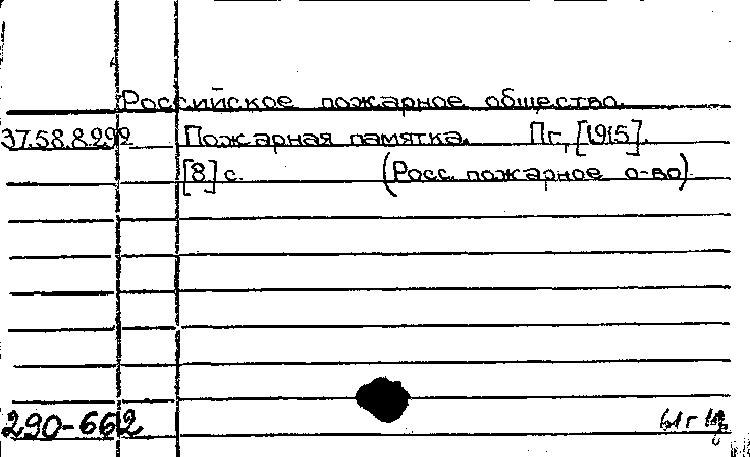 Российское пожарное общество.
37.58.8.292 Пожарная памятка. Пг, [1915].
[8] с. (Росс. пожарное о-во)
290-662